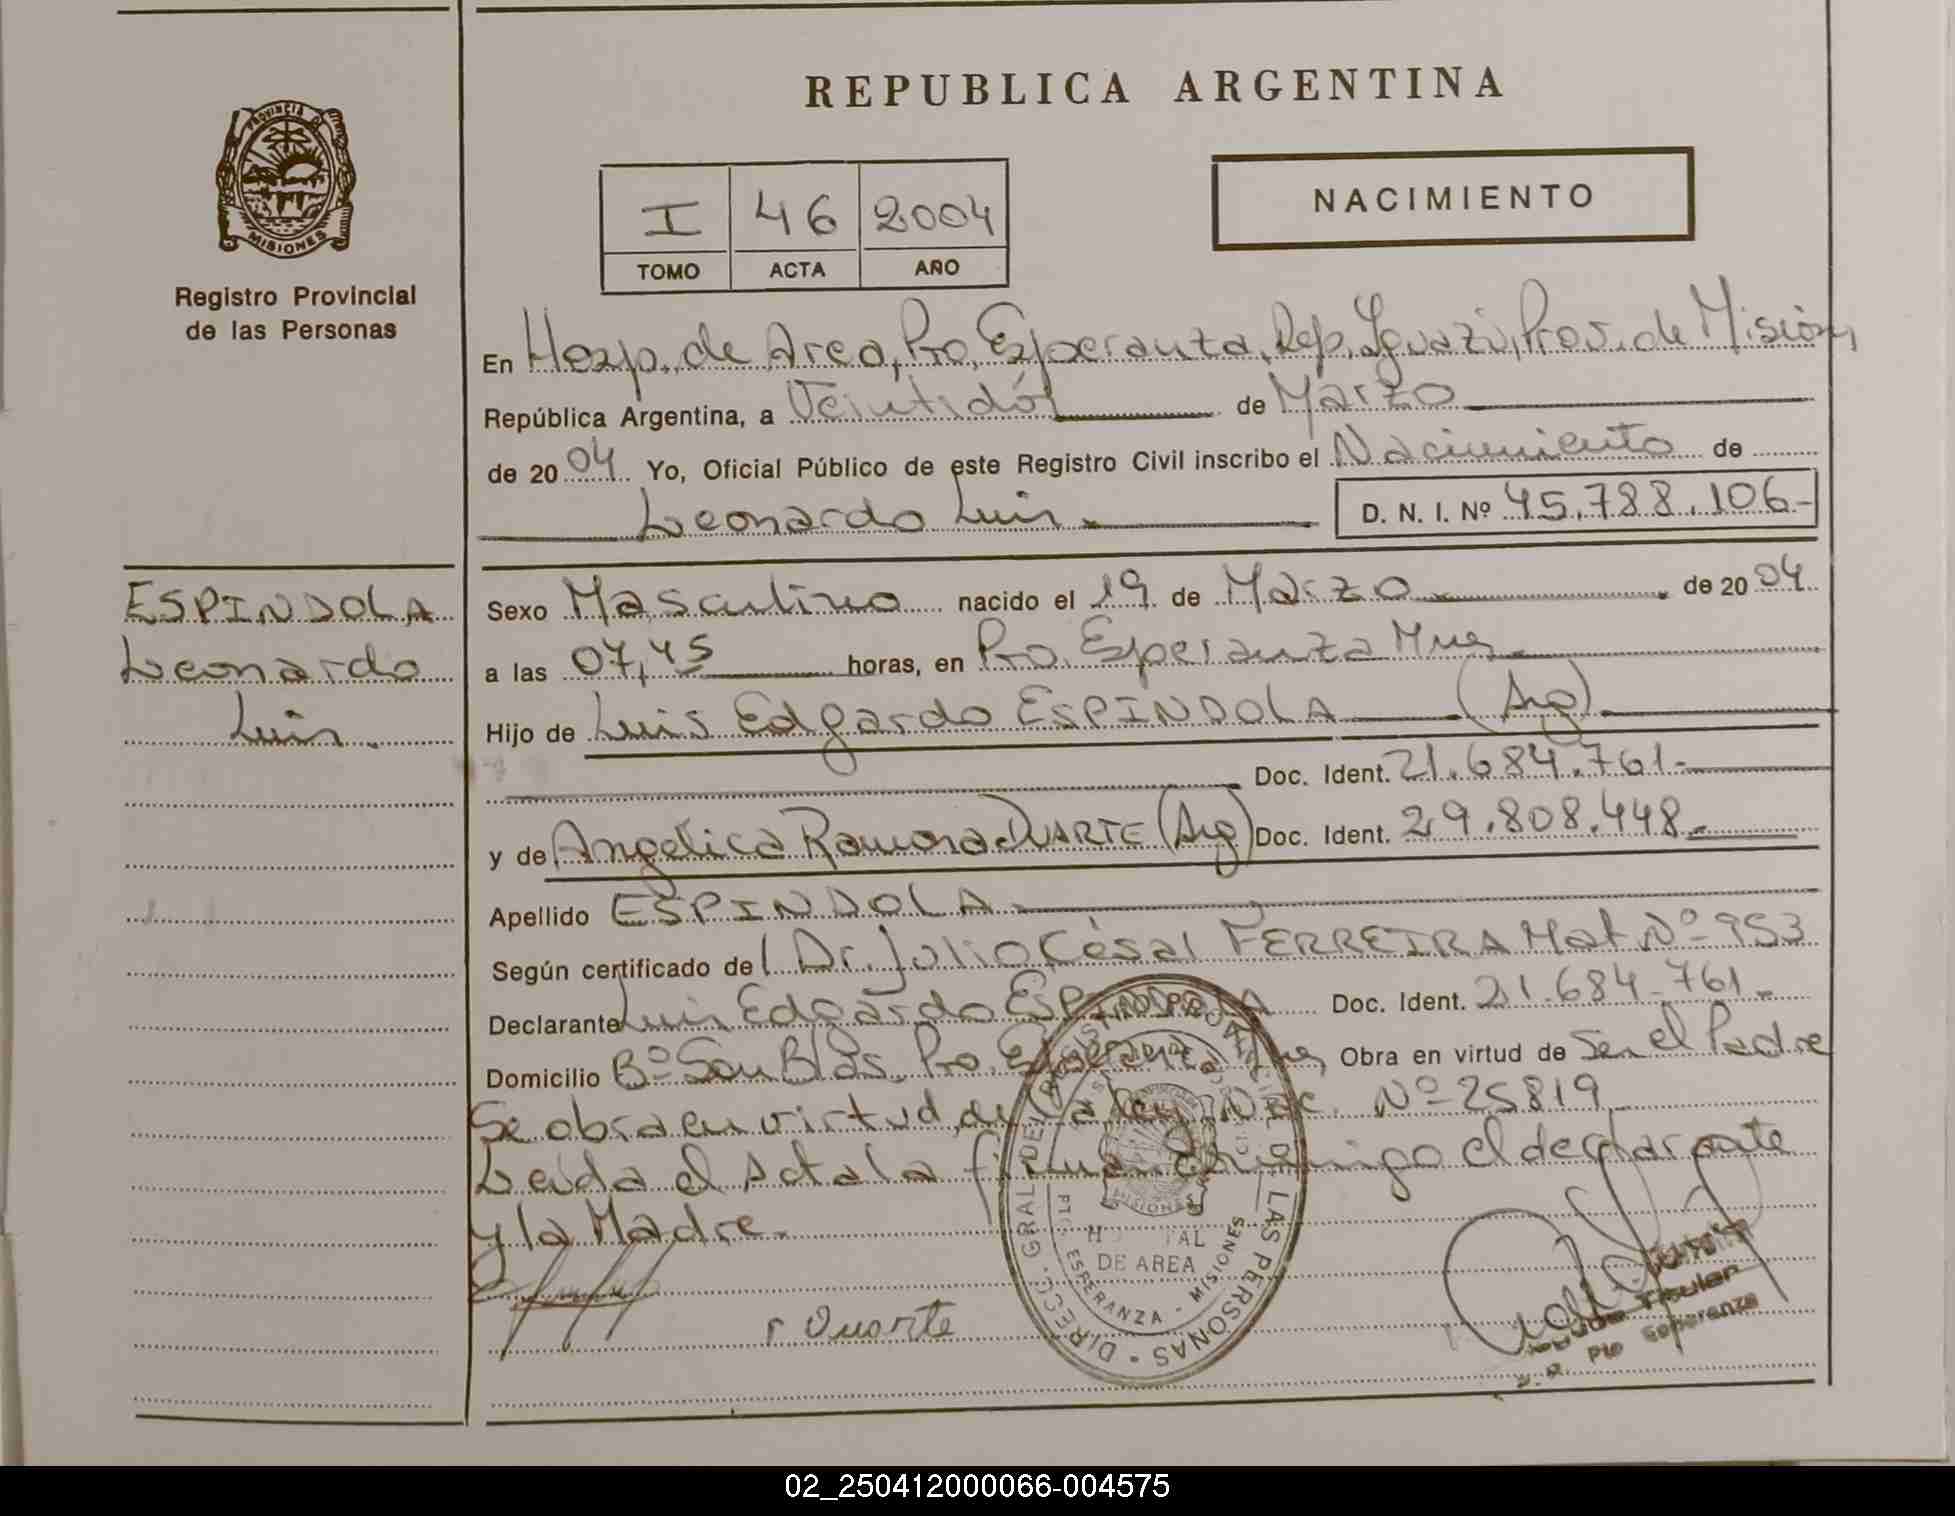 REPUBLICA ARGENTINA
PROVINCIA DE
MISIONES
Registro Provincial
de las Personas
I 46 2004
TOMO ACTA AÑO
NACIMIENTO
En Hosp. de Area, Pto. Esperanza, Dep. Iguazú, Prov. de Misiones
República Argentina, a Veintidós de Marzo
de 2004 Yo, Oficial Público de este Registro Civil inscribo el Nacimiento de
Leonardo Luis.
D. N. I. Nº 45.788.106.-
ESPINDOLA
Leonardo
Luis.
Sexo Masculino nacido el 19 de Marzo de 2004
a las 07,45 horas, en Pto. Esperanza Mnes.
Hijo de Luis Edgardo ESPINDOLA (Arg)
Doc. Ident. 21.684.761.-
y de Angélica Ramona DUARTE (Arg) Doc. Ident. 29.808.448.
Apellido ESPINDOLA
Según certificado del Dr. Julio César FERREIRA Mat Nº 953
Declarante Luis Edgardo ESPINDOLA Doc. Ident. 21.684.761.-
Domicilio Bº San Blas. Pto. Esperanza Mnes Obra en virtud de Ser el Padre
Se obra en virtud de la Ley Nac. Nº 25819
Leída el Acta la firman Conmigo el declarante
y la Madre.
r Duarte
DIRECC. GRAL DEL REGISTRO PROVINCIAL DE LAS PERSONAS
MISIONES
DE AREA
PTO ESPERANZA - MISIONES
Titular
Pto Esperanza
02_250412000066-004575